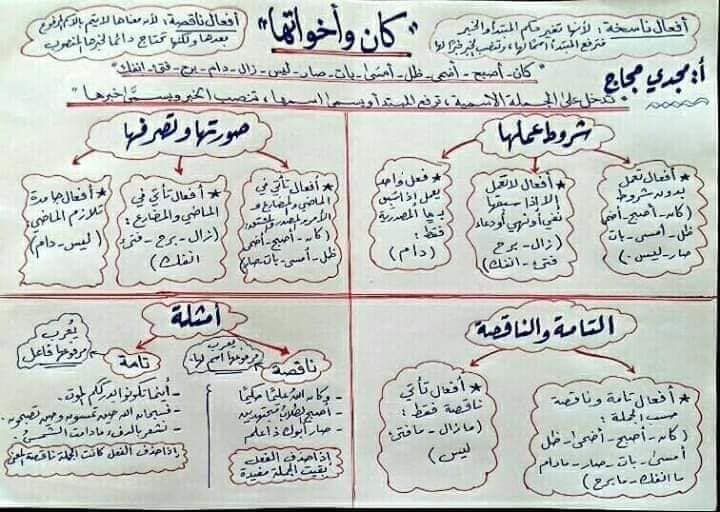 "كان وأخواتها"
أفعال ناسخة: لأنها تغير حكم المبتدأ والخبر
فترفع المبتدأ اسمًا لها، وتنصب الخبر خبرًا لها
أفعال ناقصة: لأن معناها لا يتم بالاسم المرفوع
بعدها ولكنها تحتاج دائمًا لخبرها المنصوب
أ: مجدي حجاج
"كان - أصبح - أضحى - ظل - أمسى - بات - صار - ليس - زال - دام - برح - فتئ - انفك"
"تدخل على الجملة الاسمية، ترفع المبتدأ ويسمى اسمها، تنصب الخبر ويسمى خبرها"
شروط عملها
* أفعال تعمل
بدون شروط
(كان - أصبح - أضحى
ظل - أمسى - بات
صار - ليس.)
* أفعال لا تعمل
إلا إذا سبقها
نفي أو نهي أو دعاء
(زال - برح
فتئ - انفك)
* فعل واحد
يعمل إذا سبق
بـ ما المصدرية
فقط:
(دام)
صورتها وتصرفها
* أفعال تأتي في
الماضي والمضارع و
الأمر
(كان - أصبح - أضحى
ظل - أمسى - بات - صار)
* أفعال تأتي في
الماضي والمضارع:
(زال - برح - فتئ
انفك)
* أفعال جامدة
تلازم الماضي:
(ليس - دام)
التامة والناقصة
* أفعال تامة وناقصة
حسب الجملة:
(كان - أصبح - أضحى - ظل
أمسى - بات - صار - مادام
ما انفك - ما برح)
* أفعال تأتي
ناقصة فقط:
(مازال - مافتئ
ليس)
أمثلة
ناقصة
يعرب
مرفوعها اسم لها.
- وكان الله عليمًا حكيمًا
- أصبح الطلاب مجتهدين
- صار أبوك ذا علم
إذا حذف الفعل
بقيت الجملة مفيدة
تامة
يُعرب
مرفوعها فاعل
- أينما تكونوا يدرككم الموت.
- فسبحان الله حين تمسون وحين تصبحون.
- نشعر بالدفء مادامت الشمس.
إذا حذف الفعل كانت الجملة ناقصة المعنى